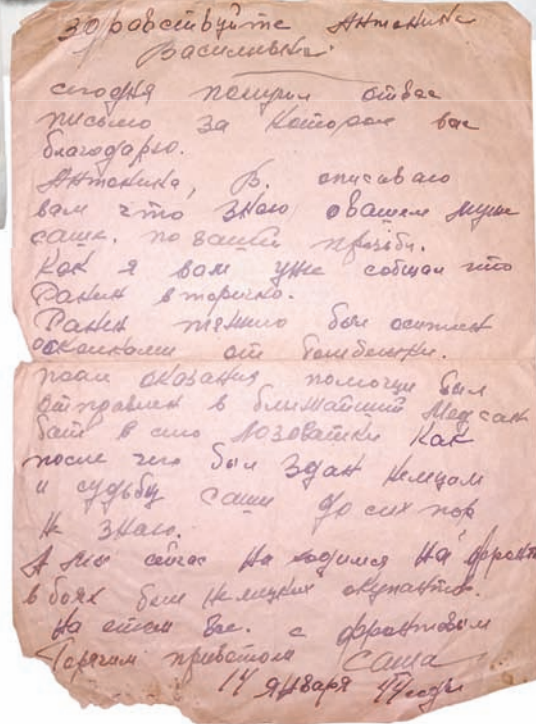 здравствуйте Антонина
Васильевна
сегодня получил отвас
письмо за которое вас
благодарю.
Антонина, В. описываю
вам что знаю овашем муже
саше. по вашей прозьби.
Как я вам уже собщал что
Ранен вторично.
Ранен тяжило был осыплен
осколками от бомбёшки.
посли оказания помощи был
отправлен в ближайший Медсан
бат в село Лозоватки Как
после чего был здан немцам
и судьбу саши до сих пор
Не знаю.
А мы сейчас На ходимся На фронте
в боях бьём Немецких окупантов.
На етом все. с фронтовым
Горячим приветом Саша
14 января 44 года